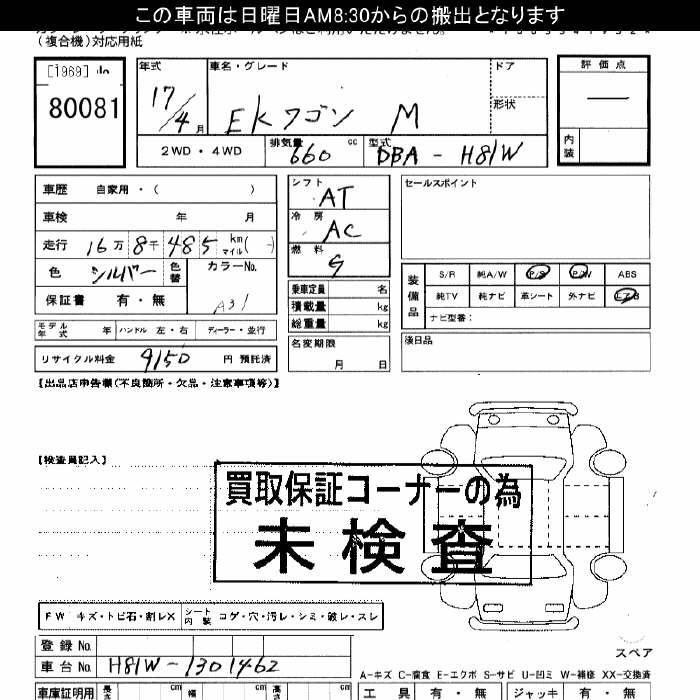 この車両は日曜日AM8:30からの搬出となります
(複合機)対応用紙
[1969]
80081
年式 車名・グレード ドア 評価点
17/4月 EKワゴン M 形状 —
2WD・4WD 排気量 660 cc 型式 DBA-H81W 内装
車歴 自家用・( )
車検 年 月
走行 16万8千485 km マイル( )
色 シルバー 色替 カラーNo. A31
保証書 有・無
モデル年式 年 ハンドル 左・右 ディーラー・並行
リサイクル料金 9150 円 預託済
シフト AT
冷房 AC
燃料 G
乗車定員 名
積載量 kg
総重量 kg
名変期限 月 日
セールスポイント
装備品 S/R 純A/W P/S P/W ABS
純TV 純ナビ 革シート 外ナビ エアB
ナビ型番:
後日品
【出品店申告欄(不良箇所・欠品・注意事項等)】
【検査員記入】
買取保証コーナーの為
未検査
FW キズ・トビ石・割レX シート内装 コゲ・穴・汚レ・シミ・破レ・スレ
登録No.
車台No. H81W-1301462
スペア
A-キズ C-腐食 E-エクボ S-サビ U-凹ミ W-補修 XX-交換済
車庫証明用 長さ cm 幅 cm 高さ cm
工具 有・無 ジャッキ 有・無